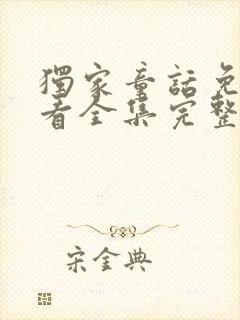 獨家童話免
看全集完整
宋金典